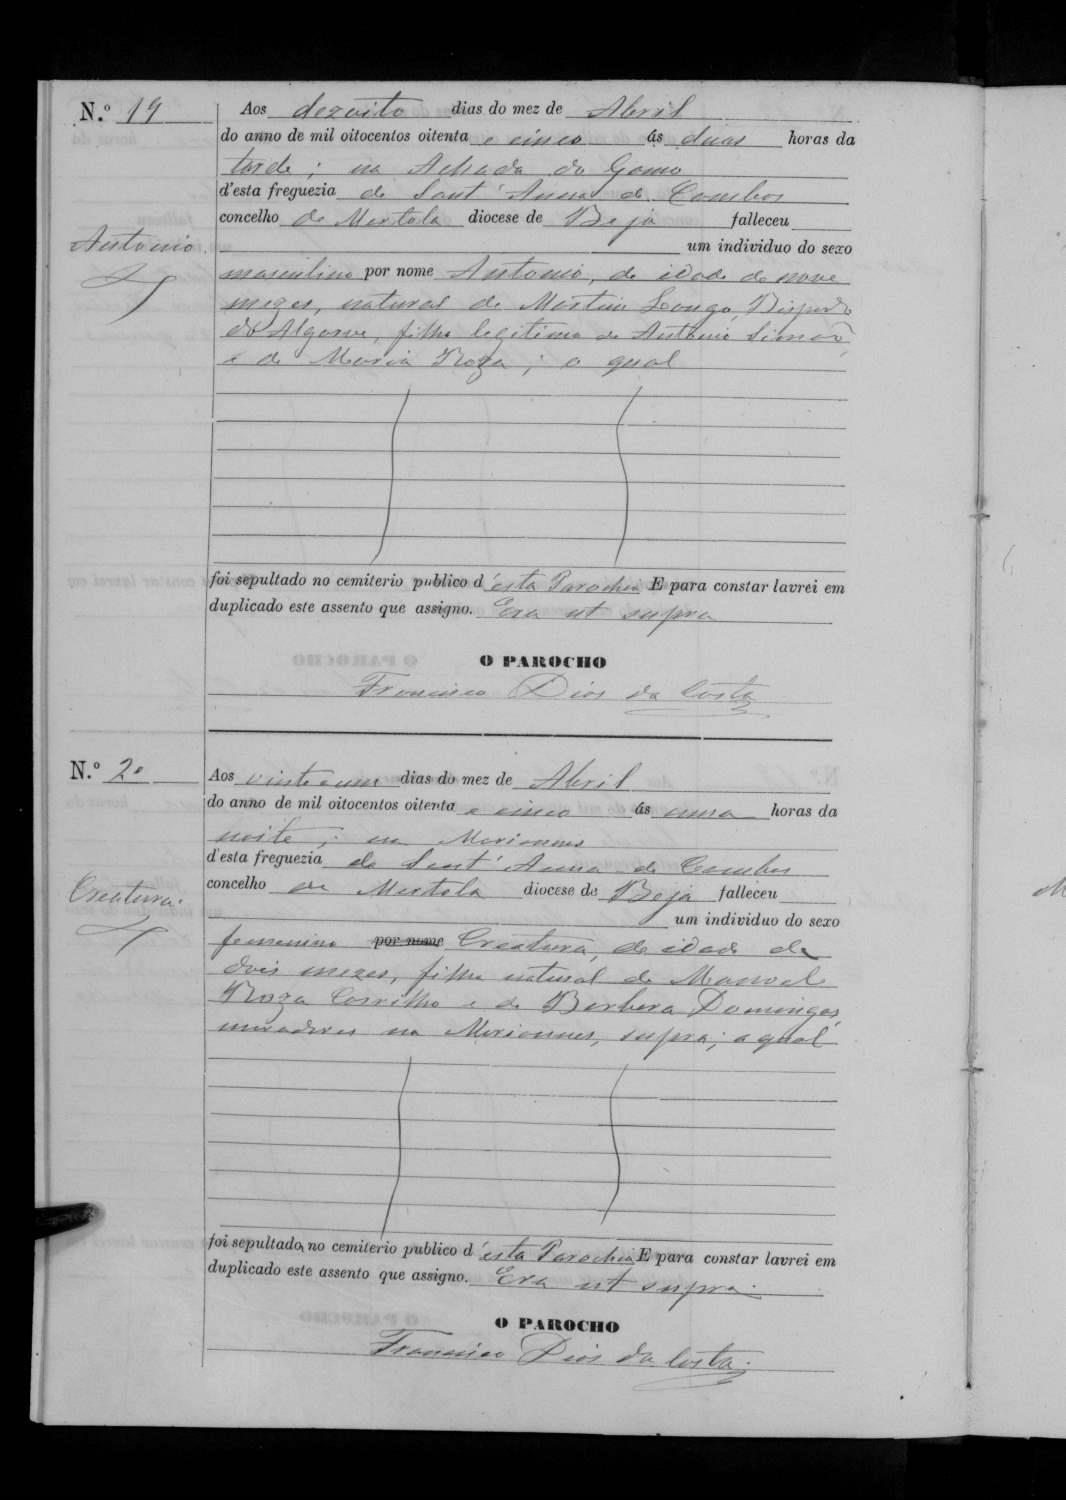 N.º 19
Aos dezoito dias do mez de Abril
do anno de mil oitocentos oitenta e cinco ás duas horas da
tarde; na Achada do Gamo
d'esta freguezia de Sant'Anna de Cambas
concelho de Mertola diocese de Beja falleceu
Antonio
um individuo do sexo
masculino por nome Antonio, de idade de nove
mezes, natural de Martim Longo, Bispado
do Algarve, filho legitimo de Antonio Simão,
e de Maria Roza; o qual
foi sepultado no cemiterio publico d'esta Parochia E para constar lavrei em
duplicado este assento que assigno. Era ut supra
O PAROCHO
Francisco Dias da Costa
N.º 20
Aos vinte e um dias do mez de Abril
do anno de mil oitocentos oitenta e cinco ás uma horas da
noite; na
d'esta freguezia de Sant'Anna de Cambas
concelho de Mertola diocese de Beja falleceu
Creatura.
um individuo do sexo
femenino por nome Creatura, de idade de
dois mezes, filha natural de Manoel
Roza Corrilho e de Barbara Domingas,
moradores na supra; a qual
foi sepultada no cemiterio publico d'esta Parochia E para constar lavrei em
duplicado este assento que assigno. Era ut supra.
O PAROCHO
Francisco Dias da Costa.